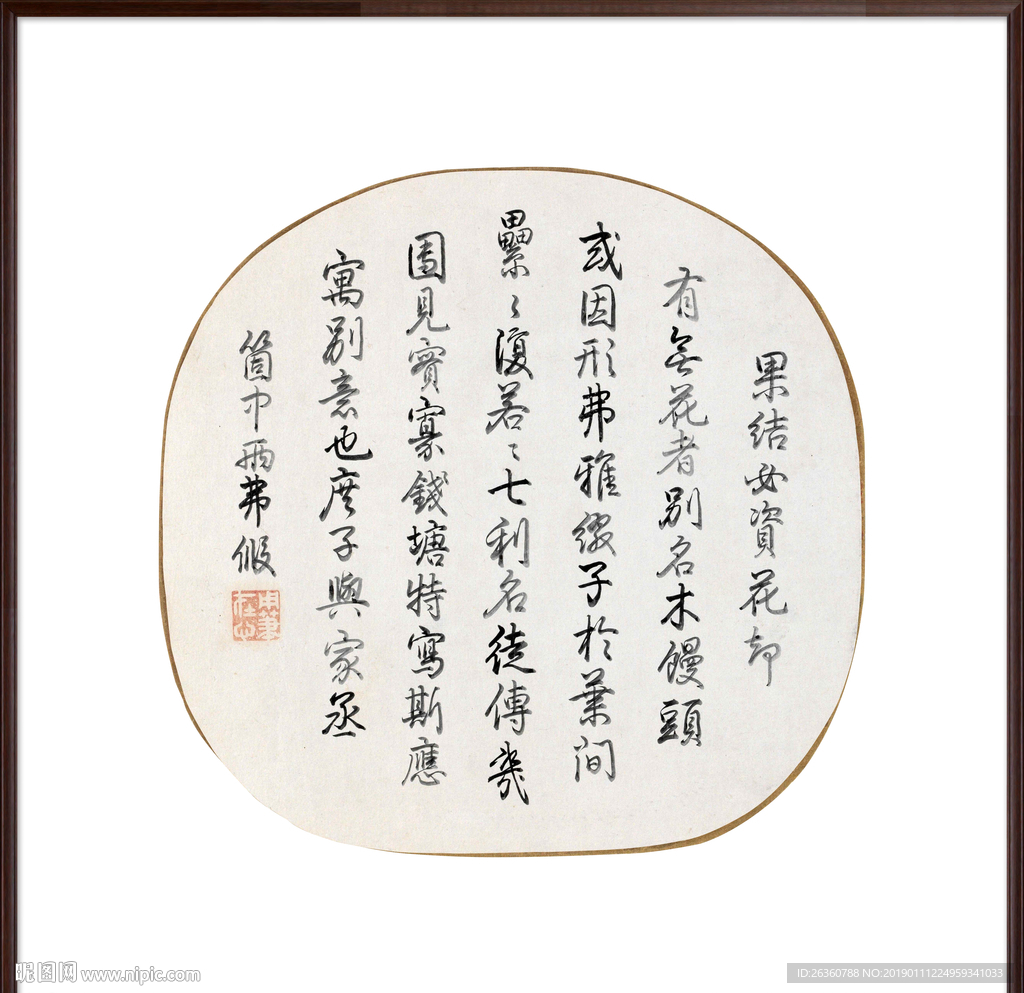 果結必資花却
有無花者别名木饅頭
或因形弗雅綴子於葉間
纍〻復若〻七利名徒傳幾
圖見實寡錢塘特寫斯應
寓别意也庶子與家丞
箇中兩弗假
用筆在心
昵图网 www.nipic.com
ID:26360788 NO:20190111224959341033